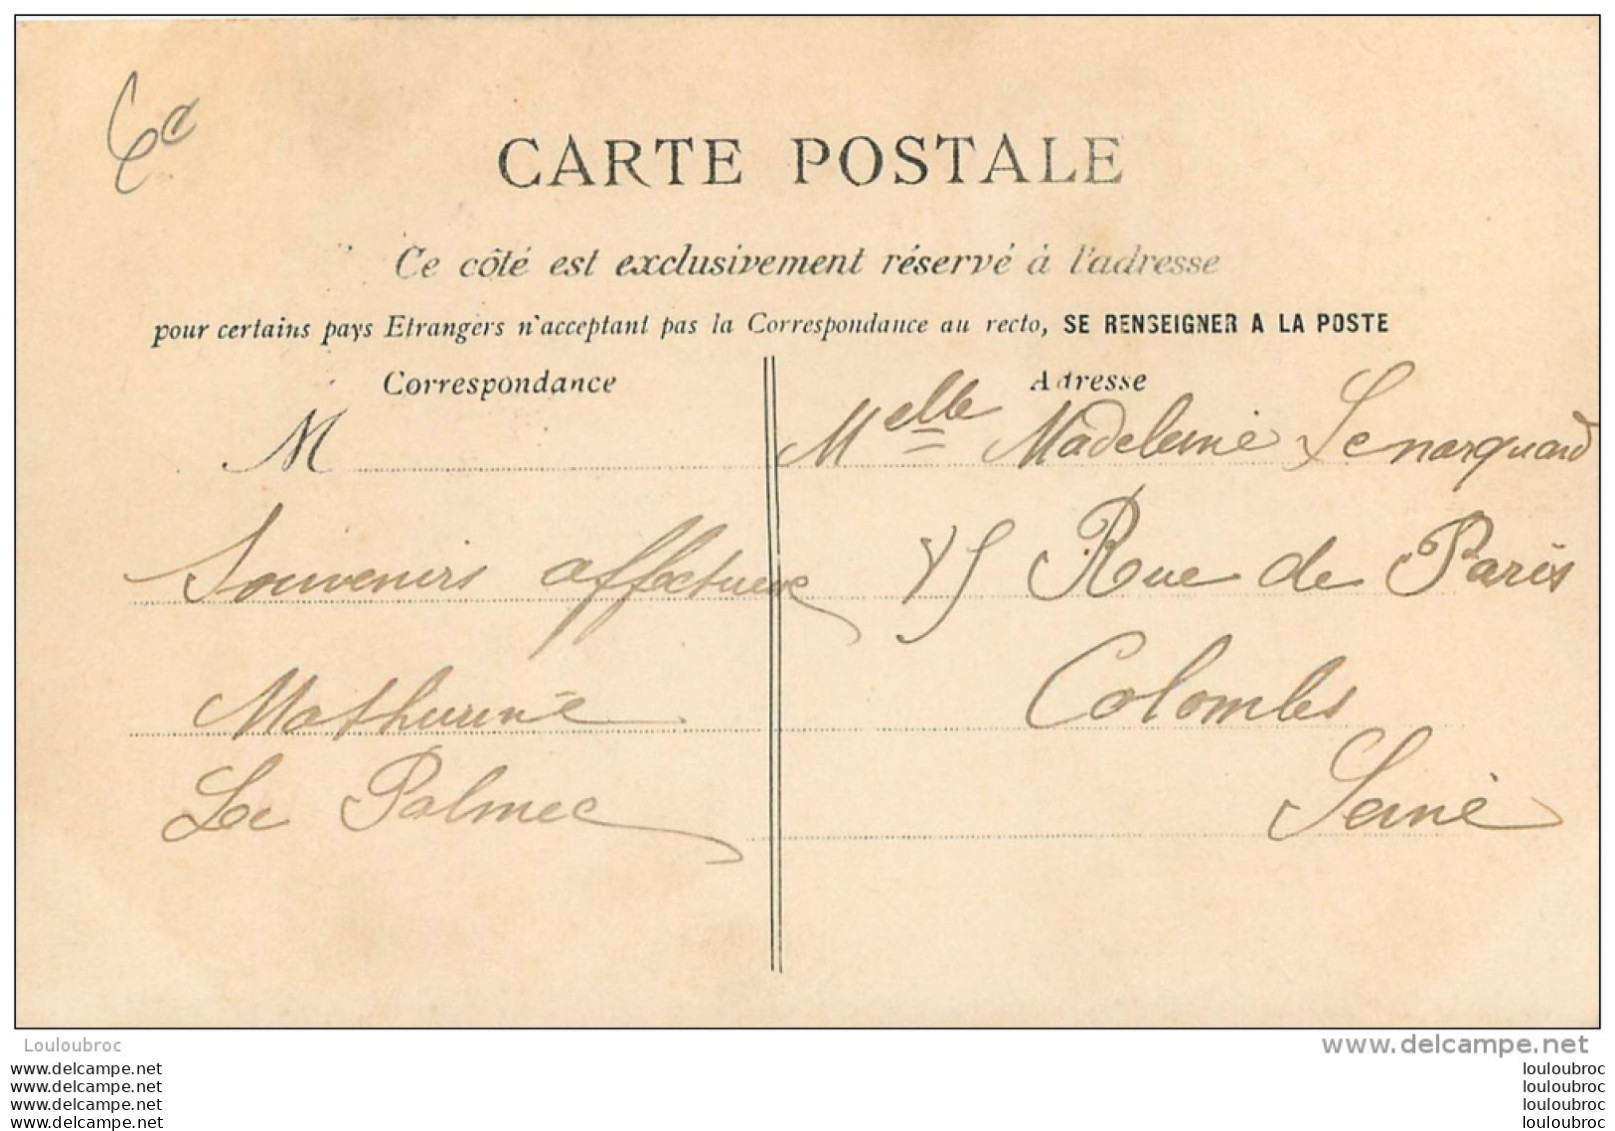 6e
CARTE POSTALE
Ce côté est exclusivement réservé à l'adresse
pour certains pays Etrangers n'acceptant pas la Correspondance au recto, SE RENSEIGNER A LA POSTE
Correspondance
M
Souvenirs affectueux
Mathurine
Le Palmec
Adresse
Melle Madeleine
Rue de Paris
Colombes
Seine
Louloubroc
www.delcampe.net
www.delcampe.net
www.delcampe.net
www.delcampe.net
www.delcampe.net
louloubroc
louloubroc
louloubroc
louloubroc